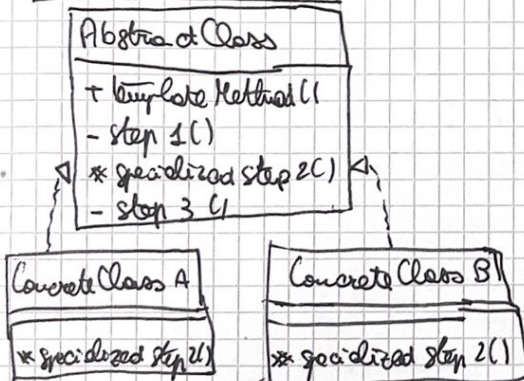 Abstract Class
+ template Method()
- step 1()
* specialized step 2()
- step 3()
Concrete Class A
* specialized step 2()
Concrete Class B
* specialized step 2()